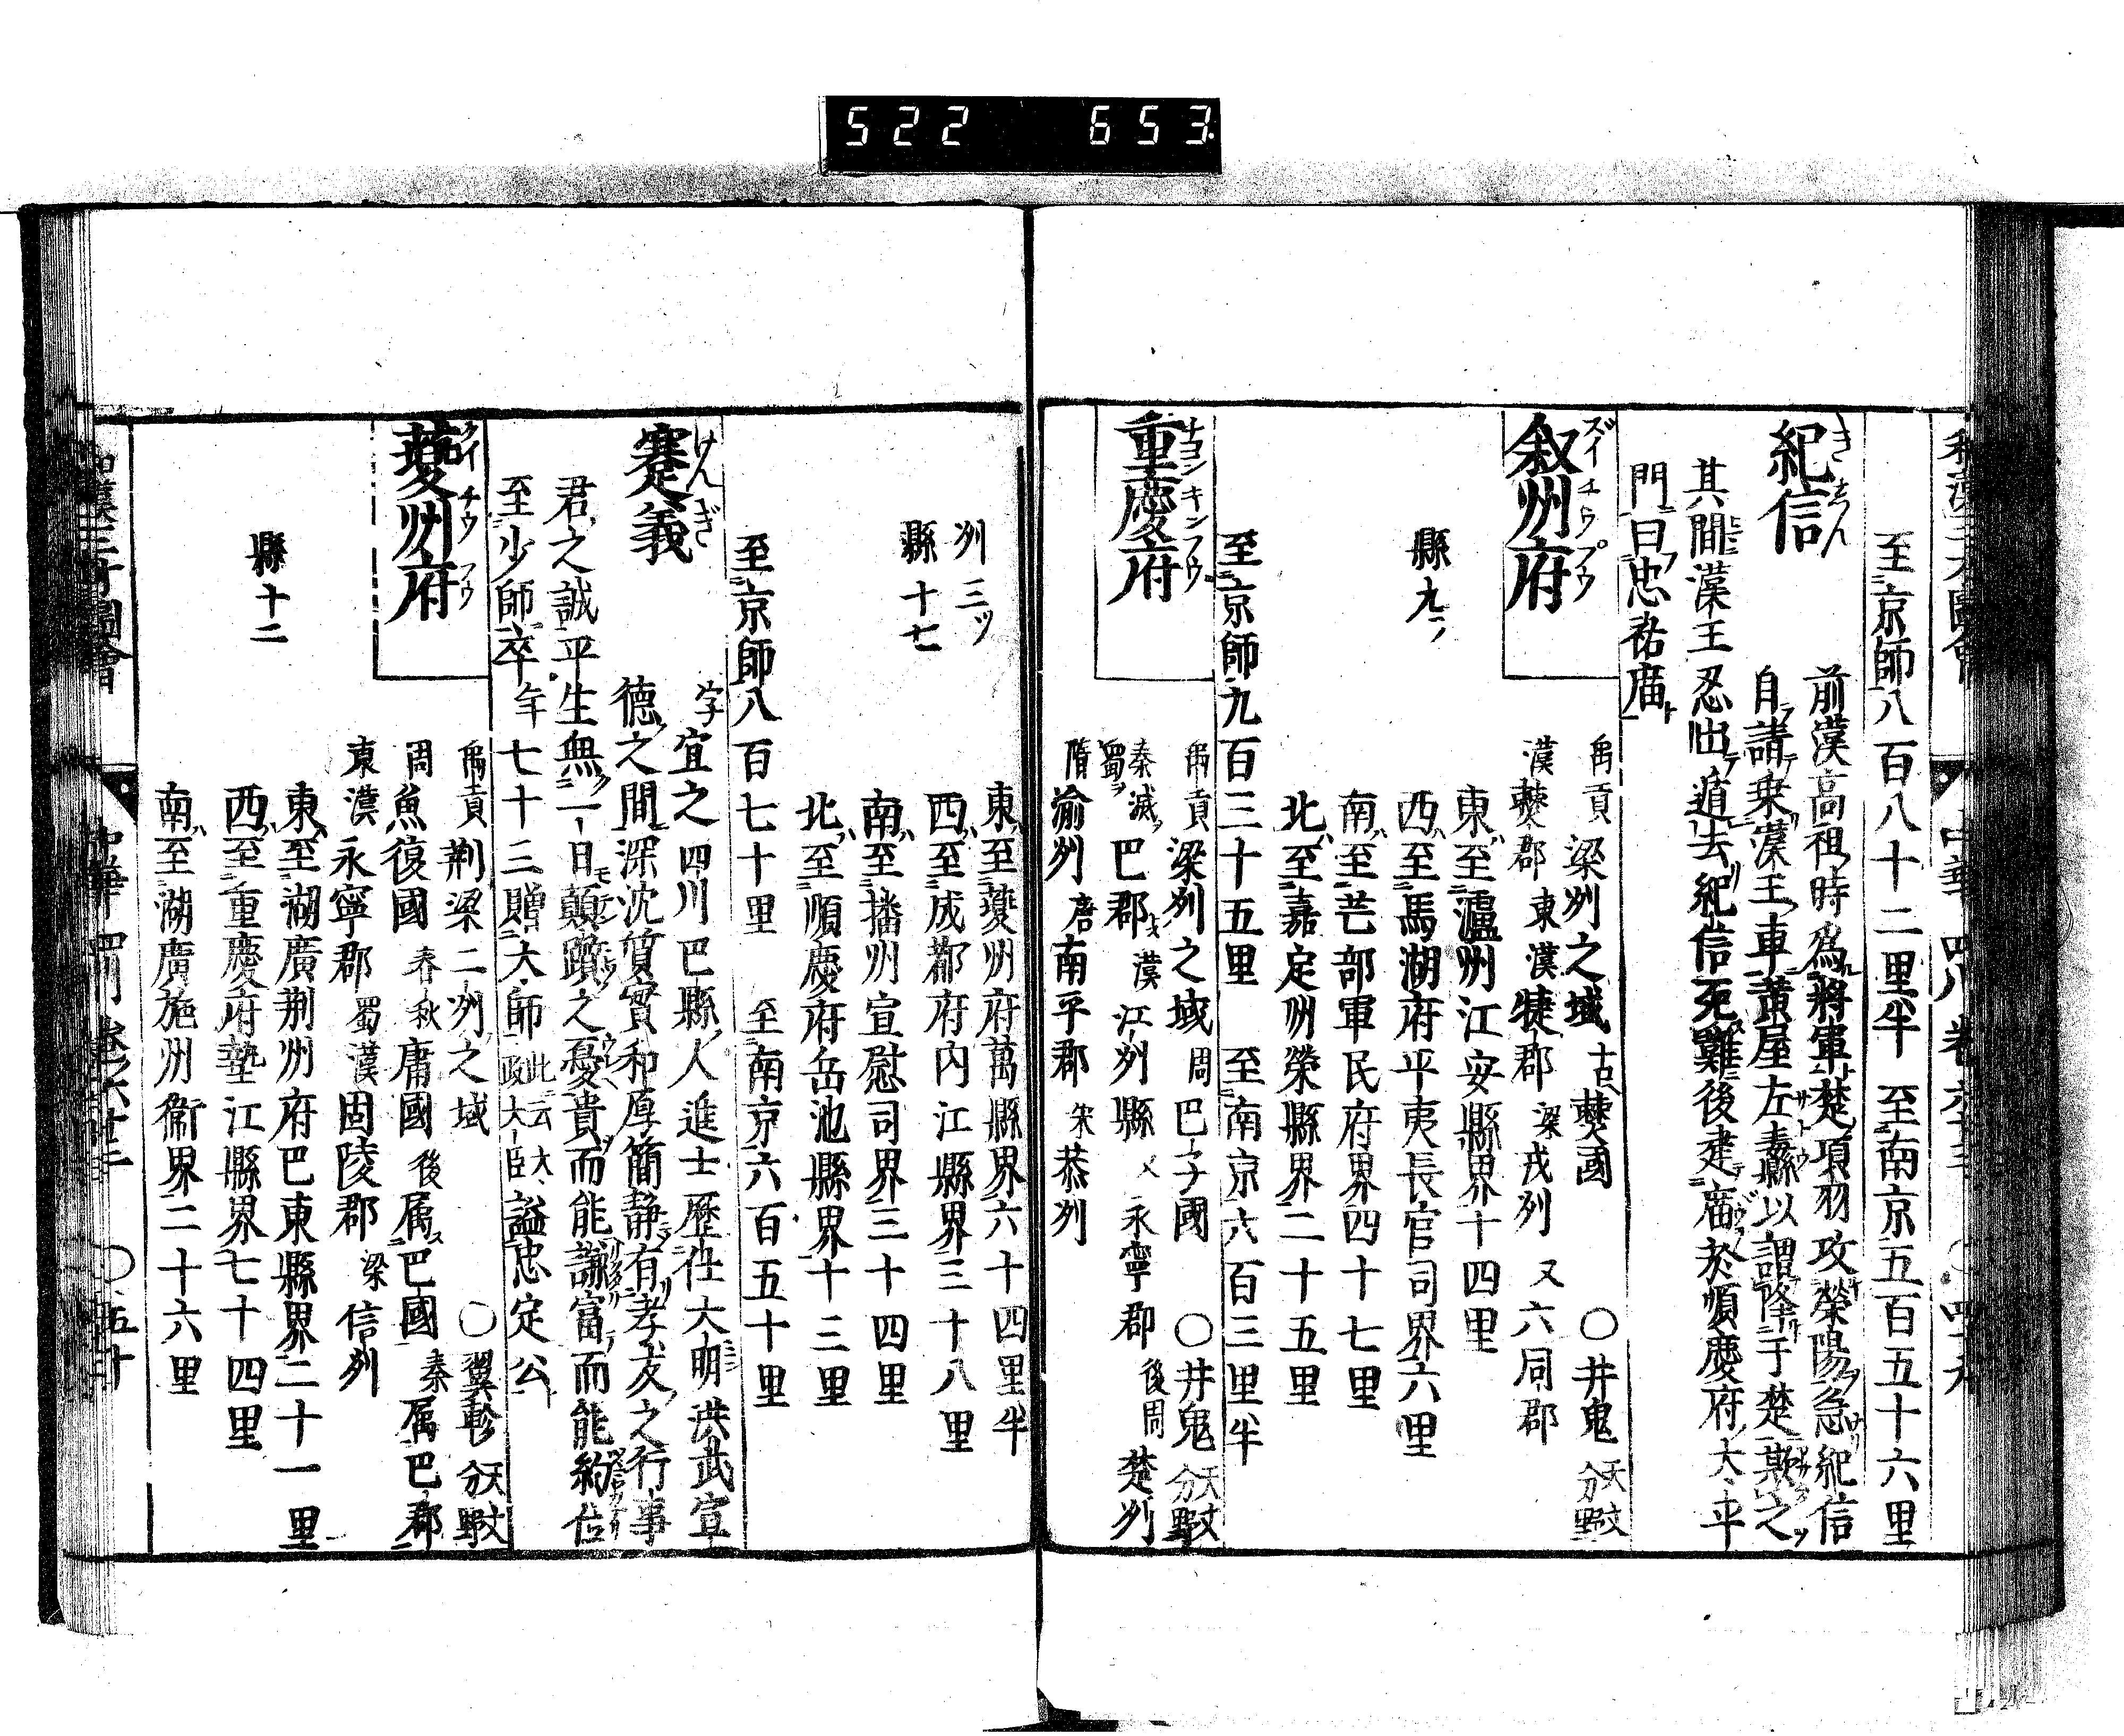 522 653
和漢三才圖會 中華 四川 卷六十二 ○四十九
至京師八百八十二里半 至南京五百五十六里
紀信 前漢高祖時爲將軍楚項羽攻滎陽急紀信
自請乗漢王車黃屋左纛以謂降于楚欺之
其間漢王忍出遁去紀信死難後建廟於順慶府大平
門曰忠祐廟
叙州府 禹貢梁州之域 古僰國 ○井鬼 天文分野
漢僰郡 東漢犍郡 梁戎州 又六同郡
縣九 東至瀘州江安縣界十四里
西至馬湖府平夷長官司界六里
南至芒部軍民府界四十七里
北至嘉定州榮縣界二十五里
至京師九百三十五里 至南京六百三里半
重慶府 禹貢梁州之域 周巴子國 ○井鬼 天文分野
秦滅蜀巴郡 漢江州縣 又永寧郡 後周楚州
隋渝州 唐南平郡 宋恭州
州三ツ 東至夔州府萬縣界六十四里半
縣十七 西至成都府内江縣界三十八里
南至播州宣慰司界三十四里
北至順慶府岳池縣界十三里
至京師八百七十里 至南京六百五十里
蹇義 字宜之四川巴縣人進士歷仕大明洪武宣
德之間深沈質實和厚簡静有孝友之行事
君之誠平生無一日顛躓之憂貴而能謙富而能約位
至少師卒年七十三贈大師 此云大政大臣 謚忠定公
夔州府 禹貢荆梁二州之域 ○翼軫 天文分野
周魚復國 春秋庸國 後属巴國 秦属巴郡
東漢永寧郡 蜀漢固陵郡 梁信州
縣十二 東至湖廣荆州府巴東縣界二十一里
西至重慶府墊江縣界七十四里
南至湖廣施州衞界二十六里
和漢三才圖會 中華 四川 卷之六十二 ○五十